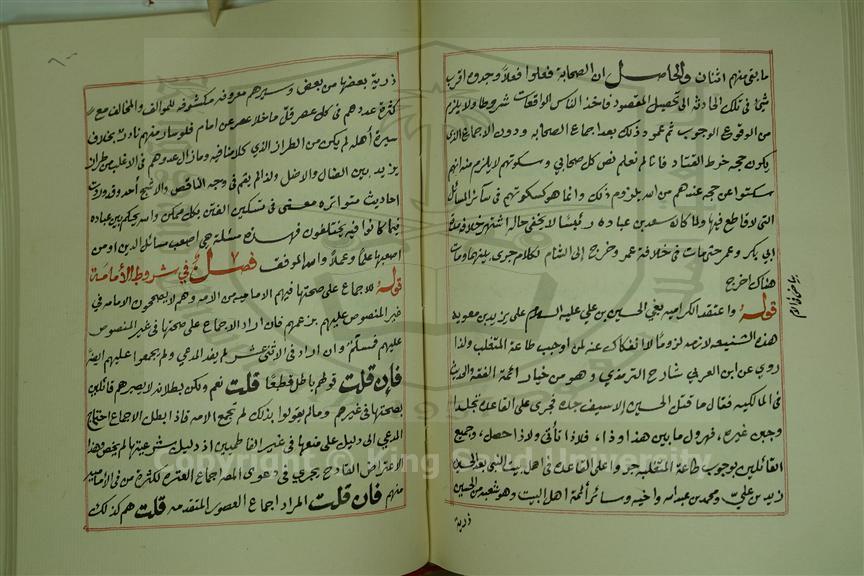 ما بقي منهم اثنان والحاصل ان الصحابة فعلوا فعلا وجدوه اقرب
شئ في تلك الحادثة الى تحصيل المقصود فاخذ الناس الواقعات شروطا ولا يلزم
من الوقوع الوجوب ثم عمر وذلك بعد اجماع الصحابه ودون الاجماع الذي
يكون حجه خرط القتاد فانا لم نعلم نص كل صحابي وسكوتهم لا يلزم منه انهم
سكتوا عن حجه عندهم من الله بلزوم ذلك وانما هو كسكوتهم في سائر المسائل
التي لا قاطع فيها ولما كان سعد بن عباده رئيسا لا يخفى حاله اشتهر خلافه على
ابي بكر وعمر حتى مات في خلافة عمر وخرج الى الشام لكلام جرى بينهما ومات
هناك
قوله واعتقد الكراميه بغي الحسين بن علي عليه السلام على يزيد بن معويه
هذه الشنيعه لازمه لزوما لا انفكاك عنه لمن اوجب طاعة المتغلب ولذا
روي عن ابن العربي شارح الترمذي وهو من خيار ائمة الفقه والحديث
في المالكيه فقال ما قتل الحسين الا بسيف جده فجرى على القاعده تجلدا
وجبن غيره، فهرول ما بين هذا وذا، فلا ذا تأتى ولا ذا حصل، وجميع
القائلين بوجوب طاعة المتغلب جروا على القاعده في اهل بيت النبي بعد الحسين
زيد بن علي ومحمد بن عبد الله واخيه وسائر ائمة اهل البيت وهو شعيد من الحسين
ذرية
ذرية بعضها من بعض وسيرهم معروفه مكشوفه للموالف والمخالف مع
كثرة عددهم في كل عصر قل ما خلا عصر عن امام فلو سار منهم نادرٌ بخلاف
سيرة أهله لم يكن من الطراز الذي كلامنا فيه وما زال عدوهم في الاغلب من طراز
يزيد بين الضال والاضل ولذا لم يقم في وجه الناقص والاشج أحد وقد وردت
احاديث متواتره معنى في تسكين الفتن بكل ممكن والله يحكم بين عباده
فيما كانوا فيه يختلفون فهذه مسئلة هي اصعب مسائل الدين او من
اصعبها علما وعملا والله الموفق فصل في شروط الأمامة
قوله للاجماع على صحتها فيهم الاماميه من الامه وهم لا يصححون الامامه في
غير المنصوص عليهم بزعمهم فان اراد الاجماع على صحتها في غير المنصوص
عليهم فمسلم وان اراد في الاثني عشر لم يفد المدعي ولم يجمعوا عليهم ايضا
فإن قلت قولهم باطل قطعا قلت نعم ولكن بطلانه لا يصيرهم قائلين
بصحتها في غيرهم وما لم يقولوا بذلك لم تجمع الامه فاذا بطل الاجماع احتاج
المدعي الى دليل على منعها في غير الفاطميين اذ دليل شرعيتها لم يخص وهذا
الاعتراض القادح يجري في دعوى المص اجماع العتره لكثرة من في الاماميه
منهم فان قلت المراد اجماع العصور المتقدمه قلت هم كذلك
Copyright © King Saud University